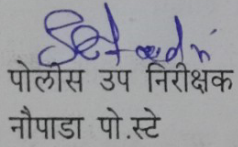 पोलीस उप निरीक्षक
नौपाडा पो.स्टे